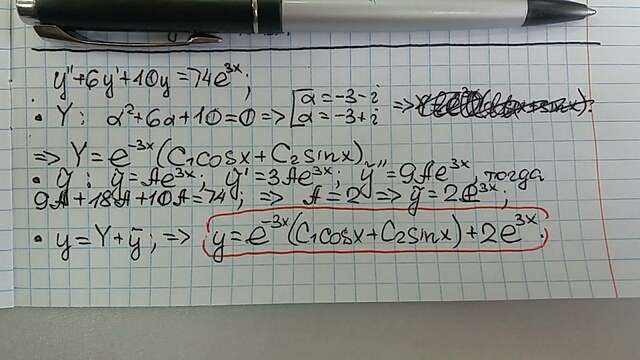 y''+6y'+10y=74e^{3x};
• Y: a²+6a+10=0 => [a=-3-i a=-3+i =>
=> Y=e^{-3x}(C₁cosx+C₂sinx)
• ỹ: ỹ=Ae^{3x}; ỹ'=3Ae^{3x}; ỹ''=9Ae^{3x}, тогда
9A+18A+10A=74; => A=2 => ỹ=2e^{3x};
• y=Y+ỹ; => y=e^{-3x}(C₁cosx+C₂sinx)+2e^{3x}.